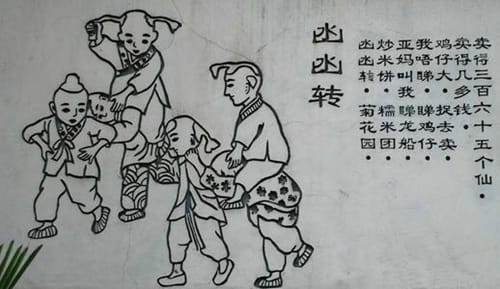 凼凼转
凼凼转·菊花园·
炒米饼·糯米团·
亚妈叫我睇龙船·
我唔睇·睇鸡仔·
鸡仔大·捉去卖·
卖得几多钱·
卖得三百六十五个仙·